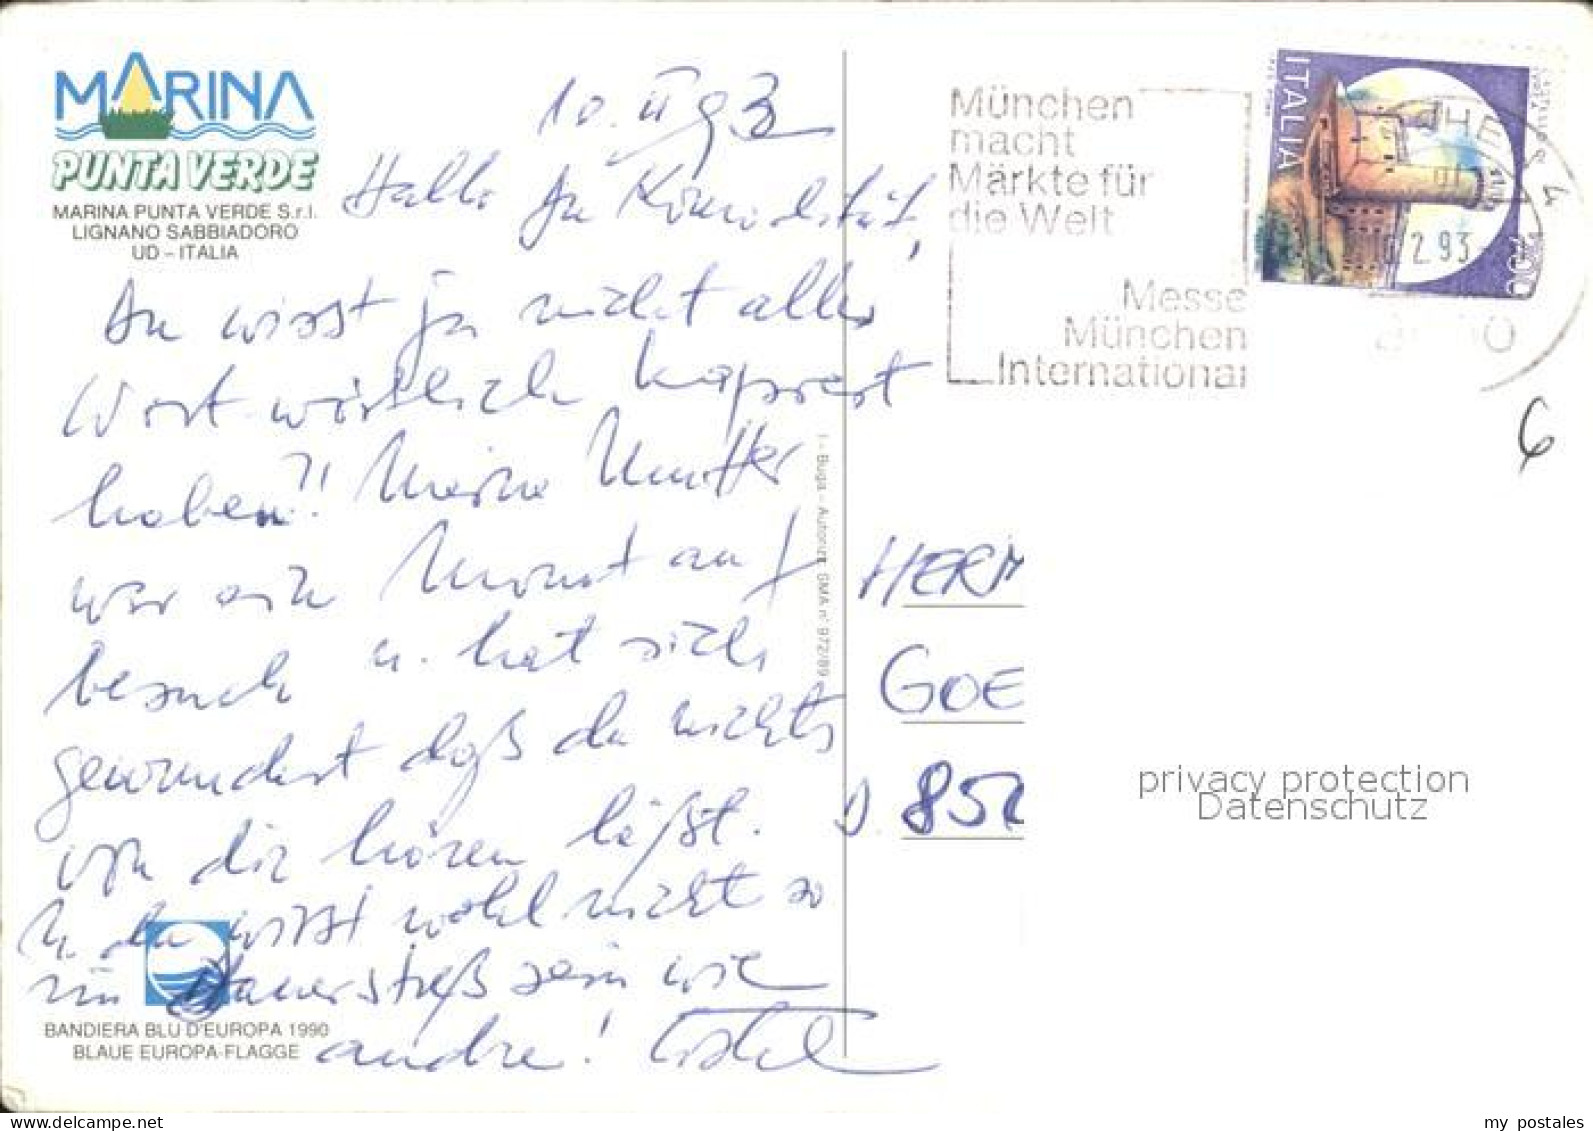 MARINA
PUNTA VERDE
MARINA PUNTA VERDE S.r.l.
LIGNANO SABBIADORO
UD - ITALIA
10. II 93
Hallo du
du wirst ja nicht alles
Wort-wörtlich kapiert
haben?! Meine Mutter
war ein Monat auf
besuch u. hat sich
gewundert daß du nichts
von dir hören läßt.
u. du wirst wohl nicht so
im Dauerstreß sein wie
andre!
BANDIERA BLU D'EUROPA 1990
BLAUE EUROPA-FLAGGE
I - Buga - Autorizz. SMA n° 972/89
München
macht
Märkte für
die Welt
Messe
München
International
ITALIA
2.93
6
HERM
GOE
D. 852
privacy protection
Datenschutz
my postales